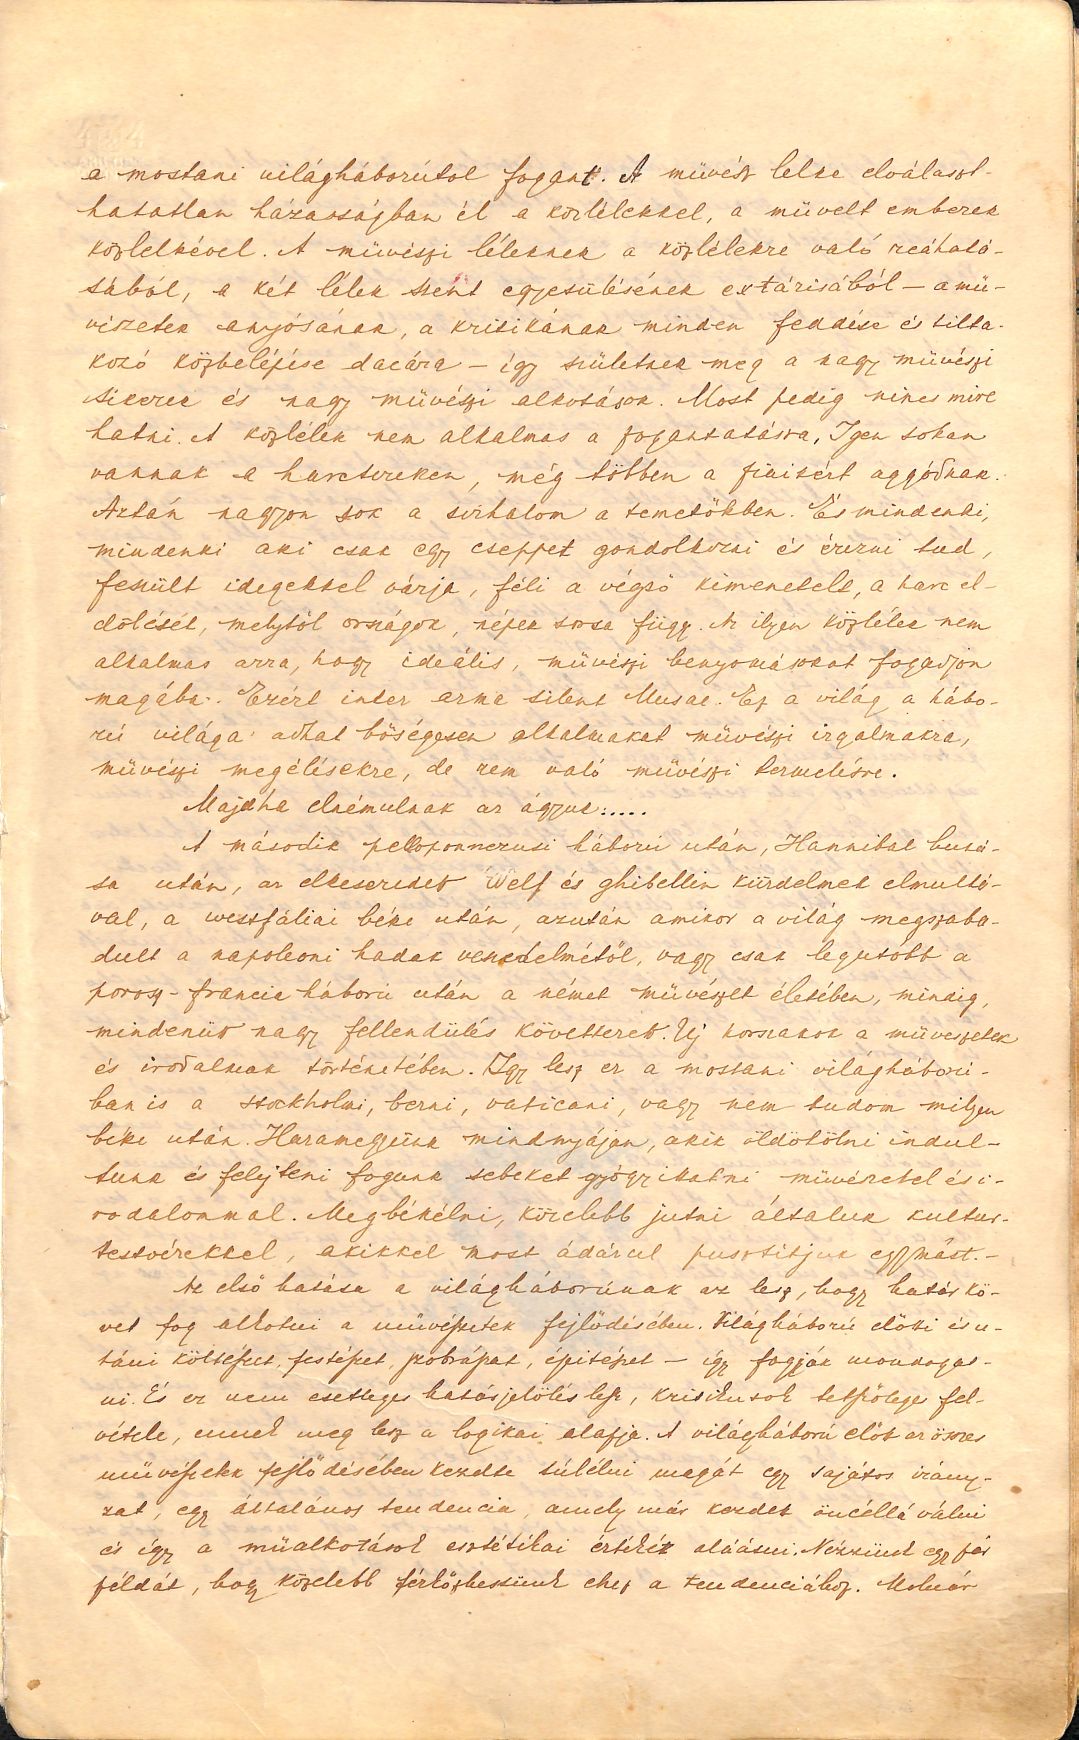 a mostani világháborútol fogant. A művész lelke elválaszt-
hatatlan házasságban él a közlélekkel, a művelt emberek
közlelkével. A művészi léleknek a közlélekre való reáható-
sából, a két lélek szent egyesülésének extázisából – a mű-
vészetek anyósának, a kritikának minden feddése és tilta-
kozó közbelépése dacára – így születnek meg a nagy művészi
sikerek és nagy művészi alkotások. Most pedig nincs mire
hatni. A közlélek nem alkalmas a fogantatásra. Igen sokan
vannak a harctereken, még többen a fiaikért aggódnak.
Aztán nagyon sok a sirhalom a temetőkben. És mindenki,
mindenki aki csak egy cseppet gondolkozni és érezni tud,
feszült idegekkel várja, féli a végső kimenetelt, a harc el-
dölését, melytől országok, népek sorsa függ. Az ilyen közlélek nem
alkalmas arra, hogy ideális, művészi benyomásokat fogadjon
magába. Ezért inter arma silent Musae. Ez a világ a hábo-
rú világa adhat bőségesen alkalmakat művészi izgalmakra,
művészi megélésekre, de nem való művészi termelésre.
Majdha elnémulnak az ágyuk.....
A második peloponnezusi háború után, Hannibal buká-
sa után, az elkeseredett Welf és ghibellin küzdelmek elmultá-
val, a westfáliai béke után, azután amikor a világ megszaba-
dult a napoleoni hadak veszedelmétől, vagy csak legutóbb a
porosz-francia háború után a német művészet életében, mindig,
mindenütt nagy fellendülés következett. Uj korszakok a művészetek
és irodalmak történetében. Igy lesz ez a mostani világháború-
ban is a stockholmi, berni, vaticani, vagy nem tudom milyen
béke után. Hazamegyünk mindnyájan, akik öldökölni indul-
tunk és felejteni fogunk sebeket gyógyitatni művészetel és i-
rodalommal. Megbékélni, közelebb jutni általuk kultur-
testvérekkel, akikkel most ádázul pusztitjuk egymást.–
Az első hatása a világháborúnak az lesz, hogy határkö-
vet fog alkotni a művészetek fejlődésében. Világháború előtti és u-
táni költészet, festészet, szobrászat, épitészet – így fogják mondogat-
ni. És ez nem esetleges határjelölés lesz, kritikusok tetszőleges fel-
vétele, ennek meg lesz a logikai alapja. A világháború előtt az összes
művészetek fejlődésében kezdte túlélni magát egy sajátos irány-
zat, egy általános tendencia, amely már kezdett öncéllá válni
és így a műalkotások esztétikai értékét aláásni. Nézzünk egy pár
példát, hogy közelebb férkőzhessünk ehez a tendenciához. Molnár